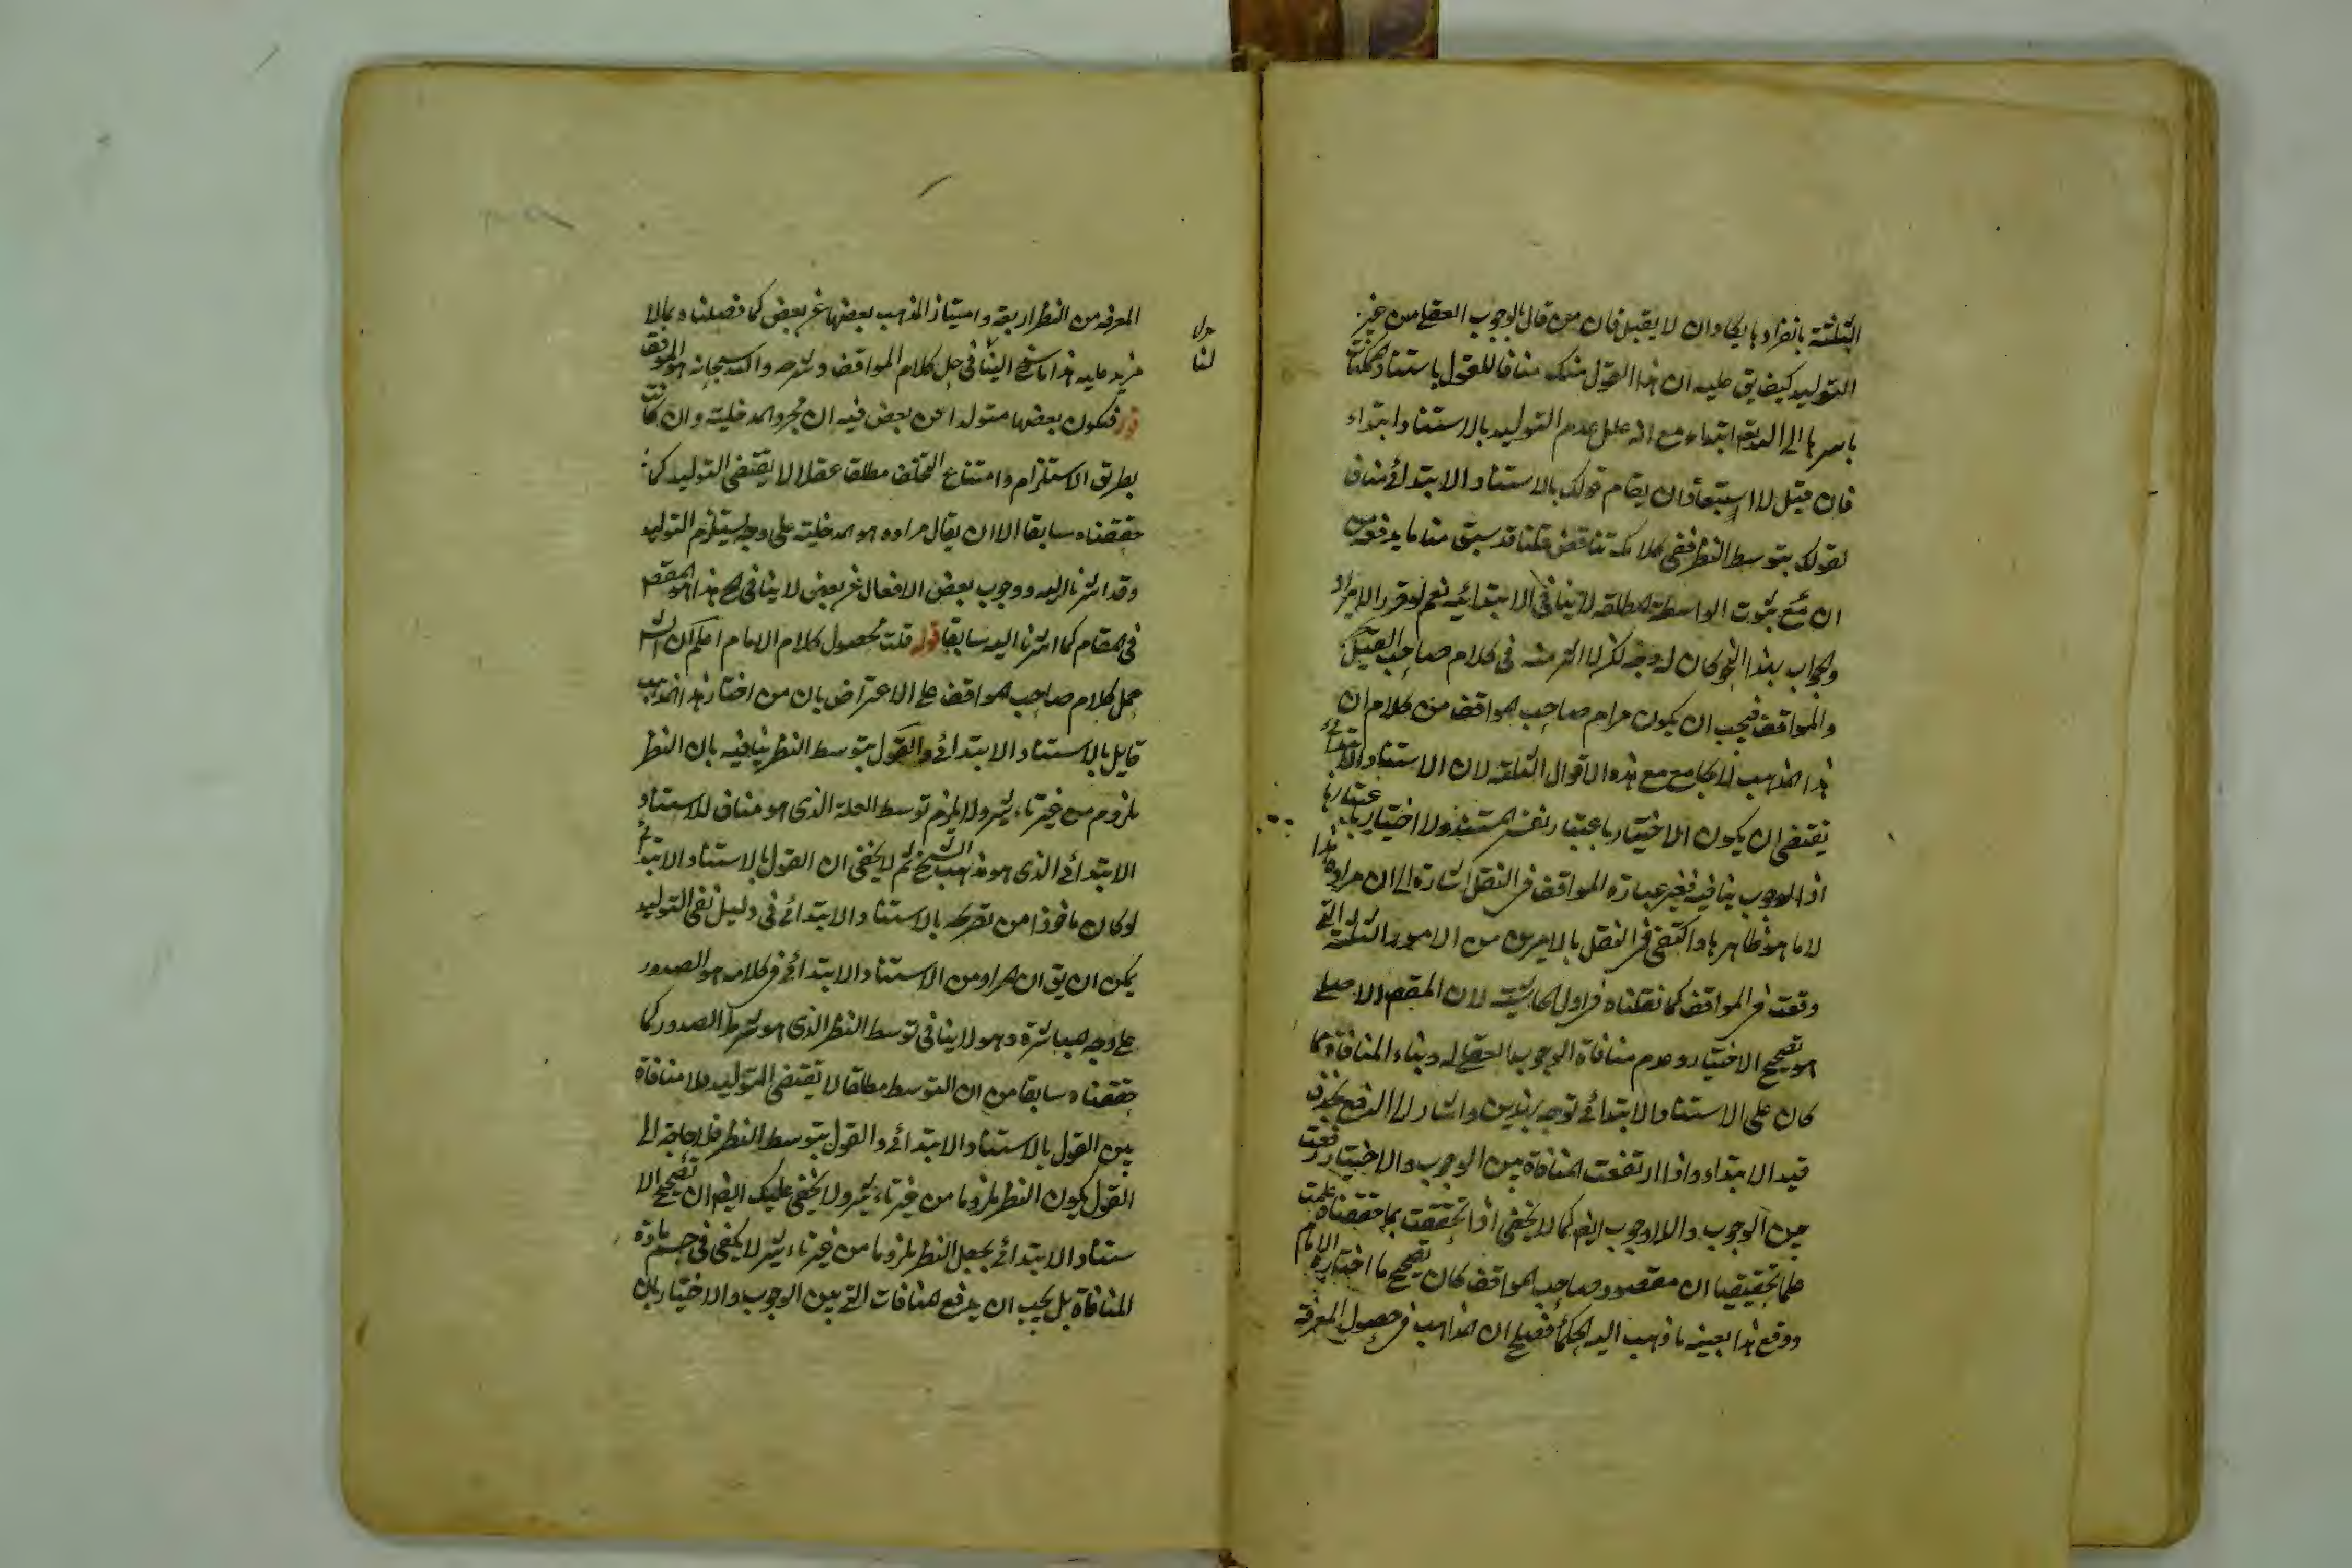 الثلثة بانفرادها يكاد ان لا يقبل فان من قال بالوجوب العقلى من غير
التوليد كيف يق عليه ان هذا القول منك مناف للقول باستناد الممكنات
باسرها الى الله تع ابتداء مع انه علل عدم التوليد بالاستناد ابتداء
فان قيل لا استبعاد ان يقام قولك بالاستناد الابتدائى مناف
لقولك بتوسط النظر ففى كلامك تناقض قلنا قد سبق منا ما يدفعه من
ان منع ثبوت الواسطة المطلقة لا ينافى الابتدائية نعم لو قرر الايراد
والجواب بهذا النحو كان له وجه لكن لا اثر منه فى كلام صاحب القيل
والمواقف فيجب ان يكون مرام صاحب المواقف من كلام ان
هذا المذهب لا يجامع مع هذه الاقوال الثلثة لان الاستناد الابتدائى
يقتضى ان يكون الاختيار باعتبار نفس المستند ولا اختيار باعتبارها
اذ الوجوب ينافيه فغير عبارة المواقف فى النقل اشارة الى ان مراده هذا
لا ما هو ظاهرها واكتفى فى النقل بالامرين من الامور الثلثة التى
وقعت فى المواقف كما نقلناه فى اول الحاشية لان المقصم الاصلى
هو تصحيح الاختيار وعدم منافاة الوجوب العقلى له وبناء المنافاة لما
كان على الاستناد الابتدائى توجه بهذين واشار الى الدفع بحذف
قيد الابتداء واذا ارتفعت المنافاة بين الوجوب والاختيار رفعت
بين الوجوب واللاوجوب ايضا كما لا يخفى اذا تحققت بما حققناه علمت
علما تحقيقيا ان مقصود صاحب المواقف كان تصحيح ما اختاره الامام
ووقع هذا بعينه ما ذهب اليه الحكماء فعلم ان المذاهب فى حصول المعرفة
المعرفه من النظر اربعة وامتياز المذهب بعضها عن بعض كما فصلناه بما لا
مزيد عليه هذا ما سنح الينا فى حل كلام المواقف وشرحه والله سبحانه هو الموفق
قوله فيكون بعضها متولدا عن بعض فيه ان مجرد المدخلية وان كانت
بطريق الاستلزام وامتناع التخلف مطلقا عقلا لا يقتضى التوليد كما
حققناه سابقا الا ان يقال مراده هو المدخلية على وجه يستلزم التوليد
وقد اشرنا اليه ووجوب بعض الافعال عن بعض لا ينافى هذا هو المقصم
فى المقام كما اشرنا اليه سابقا قوله قلت محصول كلام الامام اعلم ان الش
حمل كلام صاحب المواقف على الاعتراض بان من اختار هذا المذهب
قايل بالاستناد الابتدائى والقول بتوسط النظر ينافيه بان النظر
ملزوم من غير تاثير ولا يلزم توسط العلة الذى هو مناف للاستناد
الابتدائى الذى هو مذهب الشيخ ثم لا يخفى ان القول بالاستناد الابتدائى
لو كان ماخوذا من تصريحه بالاستناد الابتدائى فى دليل نفى التوليد
يمكن ان يق ان المراد من الاستناد الابتدائى فى كلامه هو الصدور
على وجه المباشرة وهو لا ينافى توسط النظر الذى هو شرط الصدور كما
حققناه سابقا من ان التوسط مطلقا لا تقتضى التوليد فلا منافاة
بين القول بالاستناد الابتدائى والقول بتوسط النظر فلا حاجة الى
القول بكون النظر ملزوما من غير تاثير ولا يخفى عليك ايضا ان تصحيح الا
ستناد الابتدائى بجعل النظر ملزوما من غير تاثير لا يكفى فى حسم مادة
المنافاة بل يجب ان يدفع المنافات التى بين الوجوب والاختيار بان